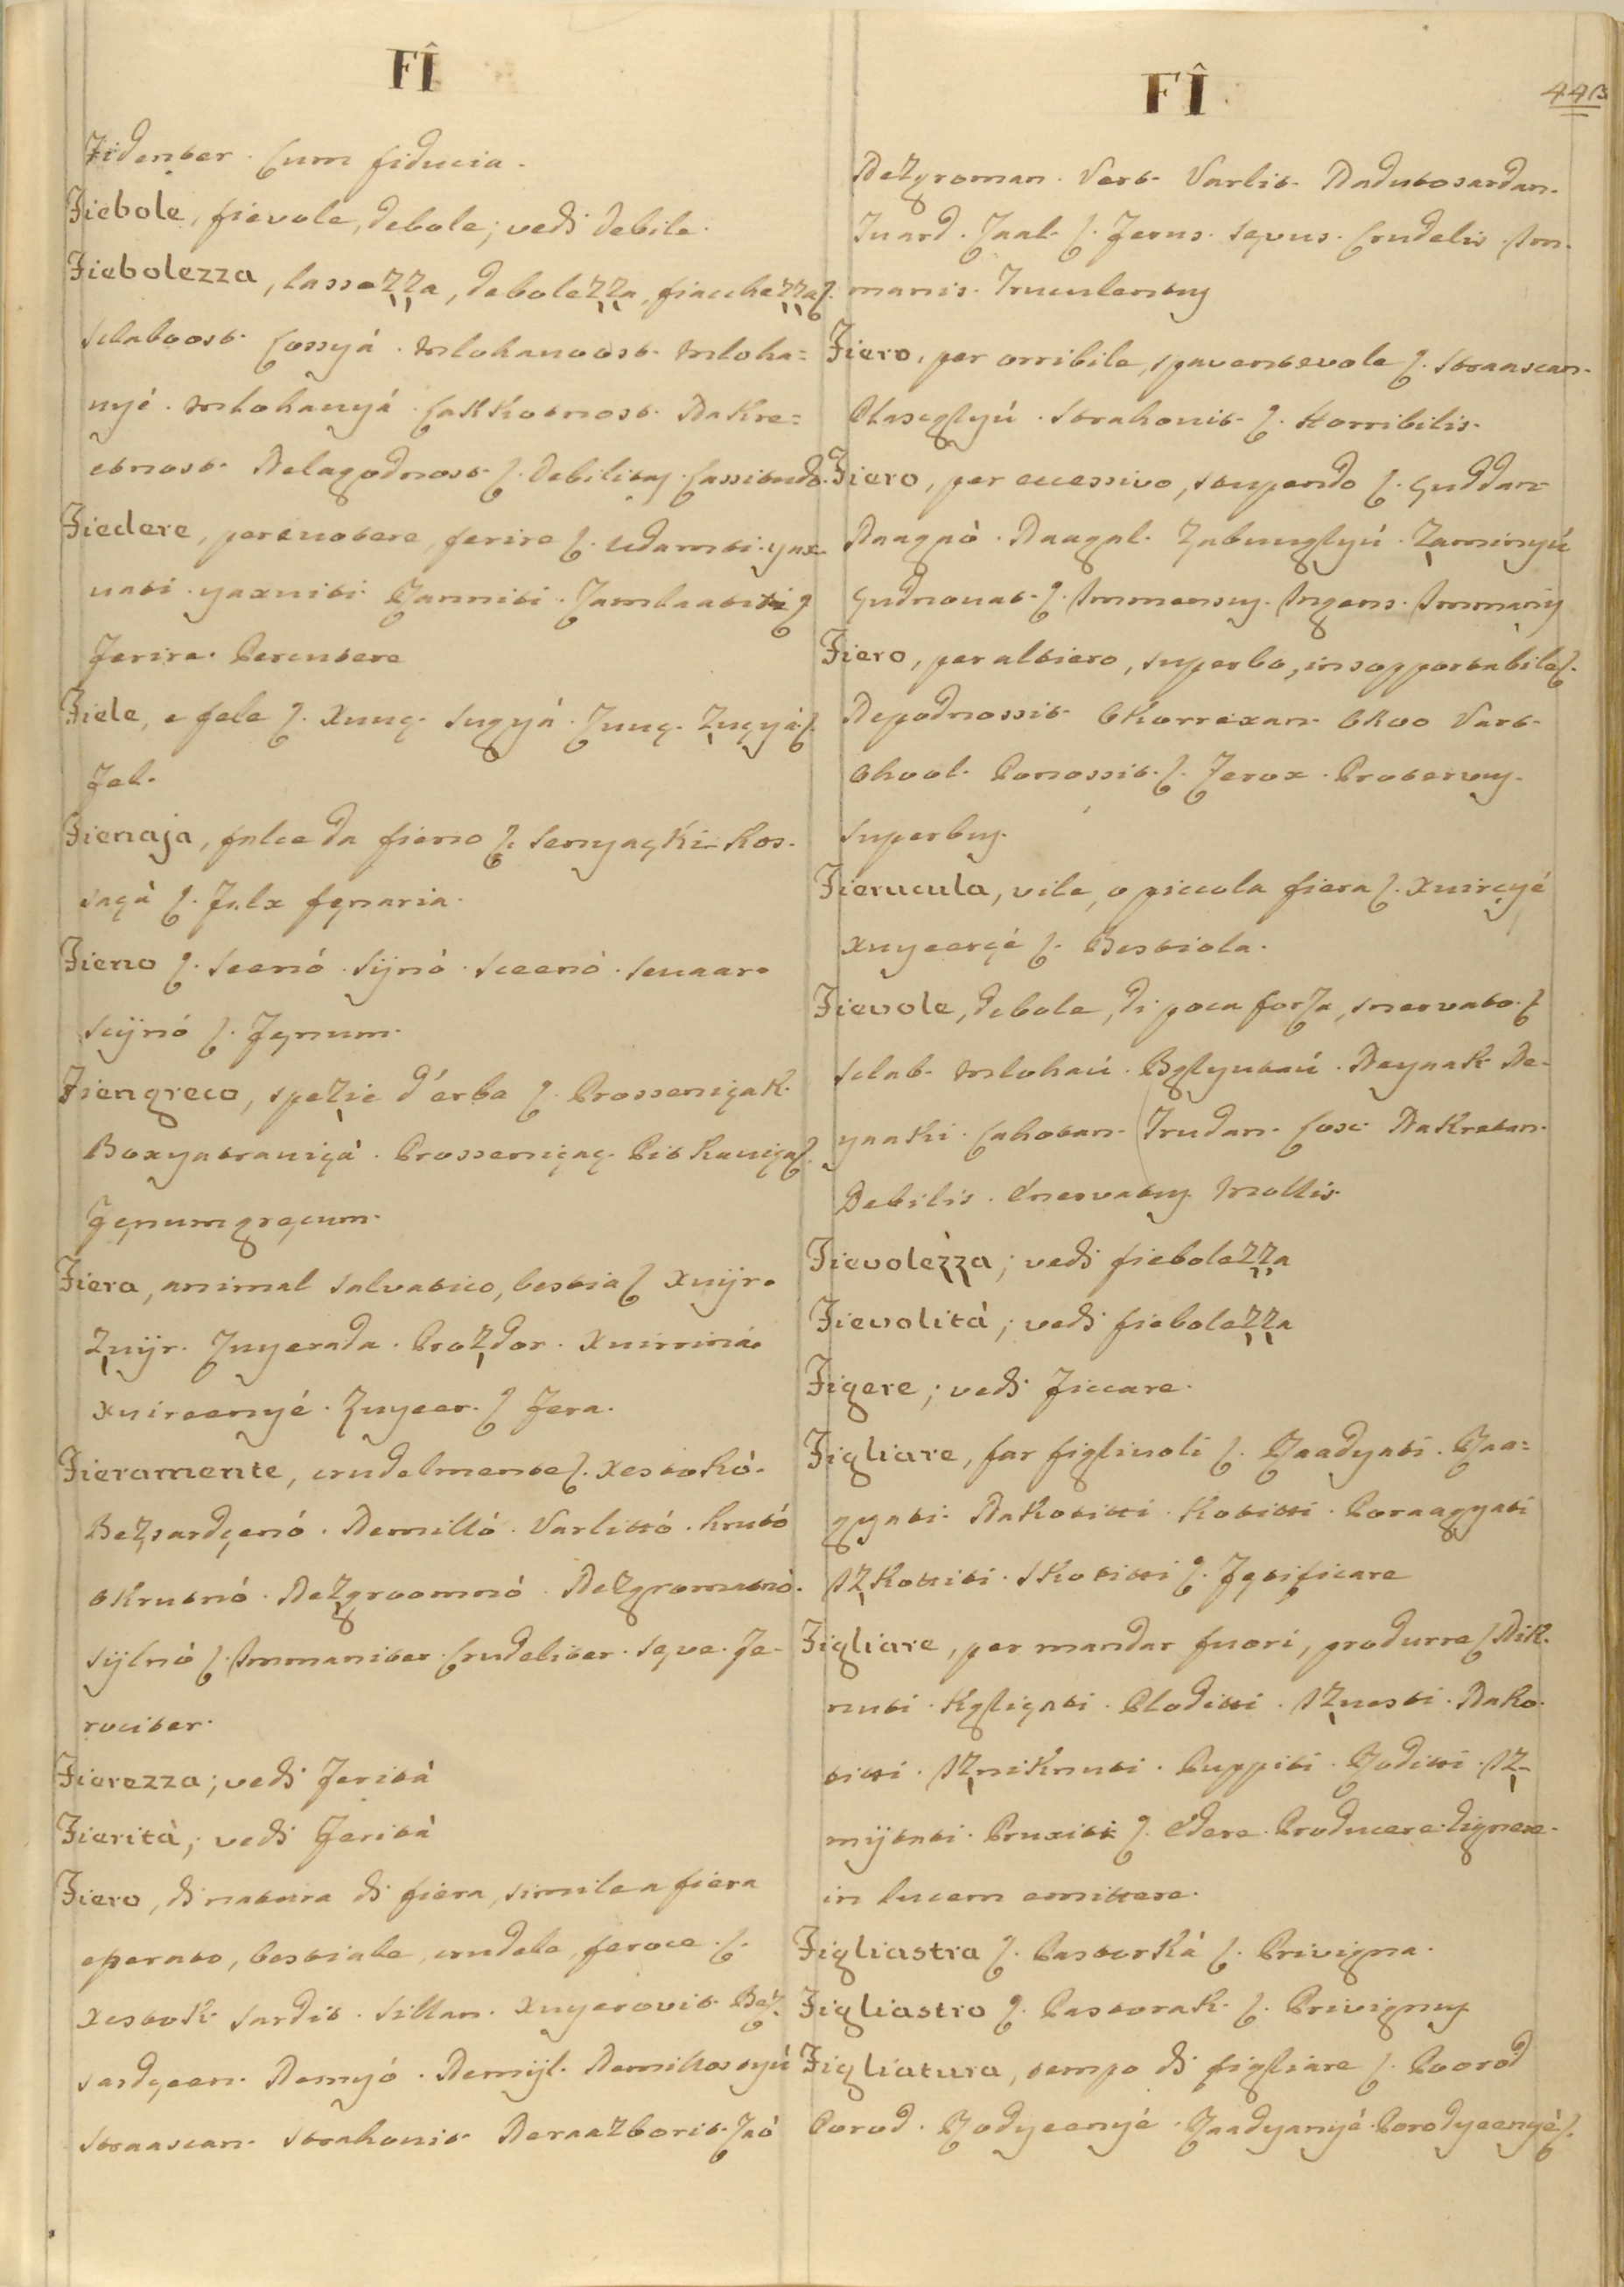 FÎ
Fidenter. Cum fiducia.
Fiebole, fievole, debole; vedi debile.
Fiebolezza, lassezza, debolezza, fiacchezza ſ.
Slaboost. Lossyá. Mlohavoost. Mloha=
vyé. Mlohavyá. Lakkotnost. Nakre=
etnost. Nelagodnost ſ. Debilitas. Lassitudo.
Fiedere, percuotere, ferire ſ. Udamti. yax-
uati. yaxuiti. Ranniti. Jamlaatiti ſ
Ferire. Percutere
Fiele, e fele ſ. Xuuç. Suçyá. Zuuç. Zuçyá ſ.
Fel.
Fienaja, falce da fieno ſ. Senyaçki Kos-
saçá ſ. Falx fęnaria.
Fieno ſ. Seenó. Sijnó. Sceenó. Senaar.
Scijnó ſ. Fęnum.
Fiengreco, spezie d'erba ſ. Prosseniçak.
Boxyatraviçá. Prosseniçaç. Pitkaviça ſ.
Fęnumgręcum.
Fiera, animal salvatico, bestia ſ Xvijr.
Zvijr. Zvyerada. Prozdor. Xvirriná.
Xvireenyé. Zvyeer. ſ Fera.
Fieramente, crudelmente ſ. Xestokó.
Bezsardçenó. Nemilló. Varlittó. Krutó
Okrutnó. Nezgroomnó. Nezgromatnó.
Sijlnó ſ. Immaniter. Crudeliter. Sęve. Fe-
rociter.
Fierezza; vedi Ferità
Fierità; vedi Ferità
Fiero, di natura di fiera, simile a fiera
eperato, bestiale, crudele, feroce. ſ.
Xestok. Sardit. Sillan. Xvyerovit. Bez-
sardçeen. Nemyó. Nemijl. Nemillostyú
Straascan. Strahovit. Neraazborit. Zaò

FÎ
443
Nezgroman. Vert. Varlit. Nadutosardan.
Tvard. Zaal. ſ. Ferus. Sęvus. Crudelis. Im-
manis. Truculentus
Fiero, per orribile, spaventevole ſ. Straascan.
Plasegljú. Strahovit. ſ. Horribilis.
Fiero, per eccessivo, stupendo ſ. Çuddan
Naagaò. Naagal. Zabungljú. Zaminyú
Çudnovat. ſ. Immensus. Ingens. Immanis
Fiero, per altiero, superbo, insopportabile ſ.
Nepodnossit. Okorrexan. Okoo Vart.
Ohool. Ponossit. ſ. Ferox. Protervus.
Superbus.
Fierucula, vile, o piccola fiera ſ. Xvirçyé
Xvyeerçé ſ. Bestiola.
Fievole, debole, di poca forza, snervato. ſ
Slab. Mlohaú. Bglyutaú. Neyaak Ne-
yaaki. Lahotan. Trudan. Losc. Nakretan.
Debilis. Enervatus. Mollis.
Fievolezza; vedi fiebolezza
Fievolità; vedi fiebolezza
Figere; vedi Ficcare.
Figliare, far figliuoli ſ. Raadyati. Raa=
gyati. Nakotitti. Kotitti. Poraagyati
Izkottiti. Skotitti ſ. Fętificare
Figliare, per mandar fuori, produrre ſ Nik-
nuti. Kgliçati. Ploditti. Iznesti. Nako-
titti. Izniknuti. Puppiti. Roditti. Iz-
mijtati. Pruxiti ſ. Edere. Producere. Gignere.
in lucem emittere.
Figliastra ſ. Pastorká ſ. Privigna.
Figliastro ſ. Pastorak. ſ. Privignus
Figliatura, tempo di figliare ſ. Poorod
Porod. Rodyeenyé. Raadyanyé. Porodyeenyé ſ.